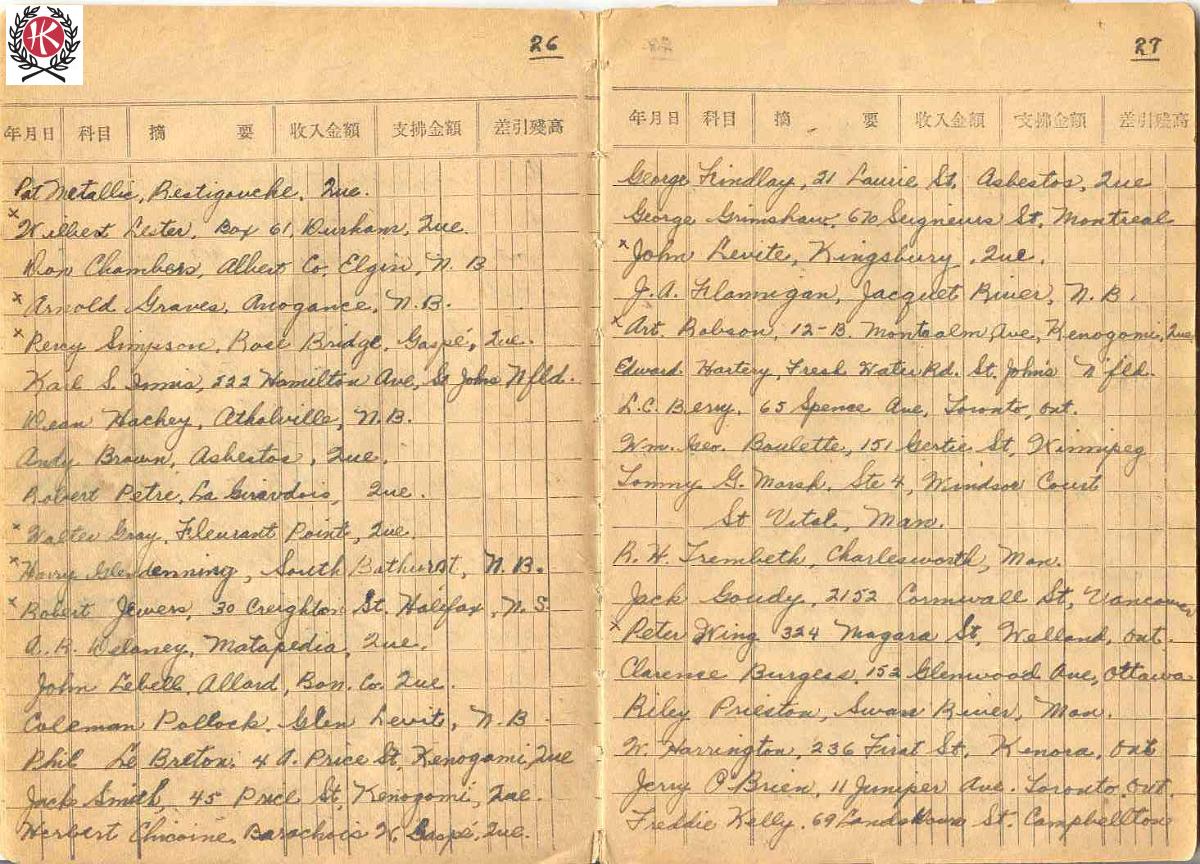 HK
26
年月日 科目 摘 要 收入金額 支拂金額 差引殘高
Pat Metallic, Restigouche, Que.
x Wilbert Lester, Box 61, Durham, Que.
Don Chambers, Albert Co, Elgin, N. B
x Arnold Graves, Arrogance, N. B.
x Percy Simpson, Rose Bridge, Gaspé, Que.
Karl S. Innis, 222 Hamilton Ave, St Johns Nfld.
Dean Hachey, Atholville, N. B.
Andy Brown, Asbestos, Que.
Robert Petre, La Que.
x Walter Gray, Fleurant Point, Que.
x Harry Glendenning, South Bathurst, N. B.
x Robert Jewers, 30 Creighton St. Halifax, N. S.
A. R. Delaney, Matapedia, Que.
John Lebell, Allard, Bon. Co. Que.
Coleman Pollock, Glen Levit, N. B
Phil Le Breton, 4 A. Price St, Kenogami, Que
Jack Smith, 45 Price St, Kenogami, Que.
Herbert Chicoine Barachois W. Gaspé, Que.
27
年月日 科目 摘 要 收入金額 支拂金額 差引殘高
George Findlay, 21 Laurie St, Asbestos, Que
George Grimshaw, 670 Seigneurs St, Montreal
x John Levite, Kingsbury, Que.
J. A. Flannigan, Jacquet River, N. B.
x Art. Robson, 12-B. Montcalm Ave, Kenogami, Que
Edward Hartery, Fresh Water Rd. St. John's N'fld.
L. C. Berry, 65 Spence Ave, Toronto, Ont.
Wm. Geo. Boulette, 151 Gertie St, Winnipeg
Tommy G. Marsh, Ste 4, Windsor Court
St Vital, Man.
R. H. Trembeth, Charlesworth, Man.
Jack Goudy, 2152 Cornwall St, Vancouver
x Peter Wing 324 Niagara St, Welland, Ont.
Clarence Burgess, 152 Glenwood Ave, Ottawa
Riley Prieston, Swan River, Man.
W. Harrington, 236 First St, Kenora, Ont
Jerry O'Brien, 11 Juniper Ave. Toronto, Ont.
Freddie Kelly. 69 St. Campbellton